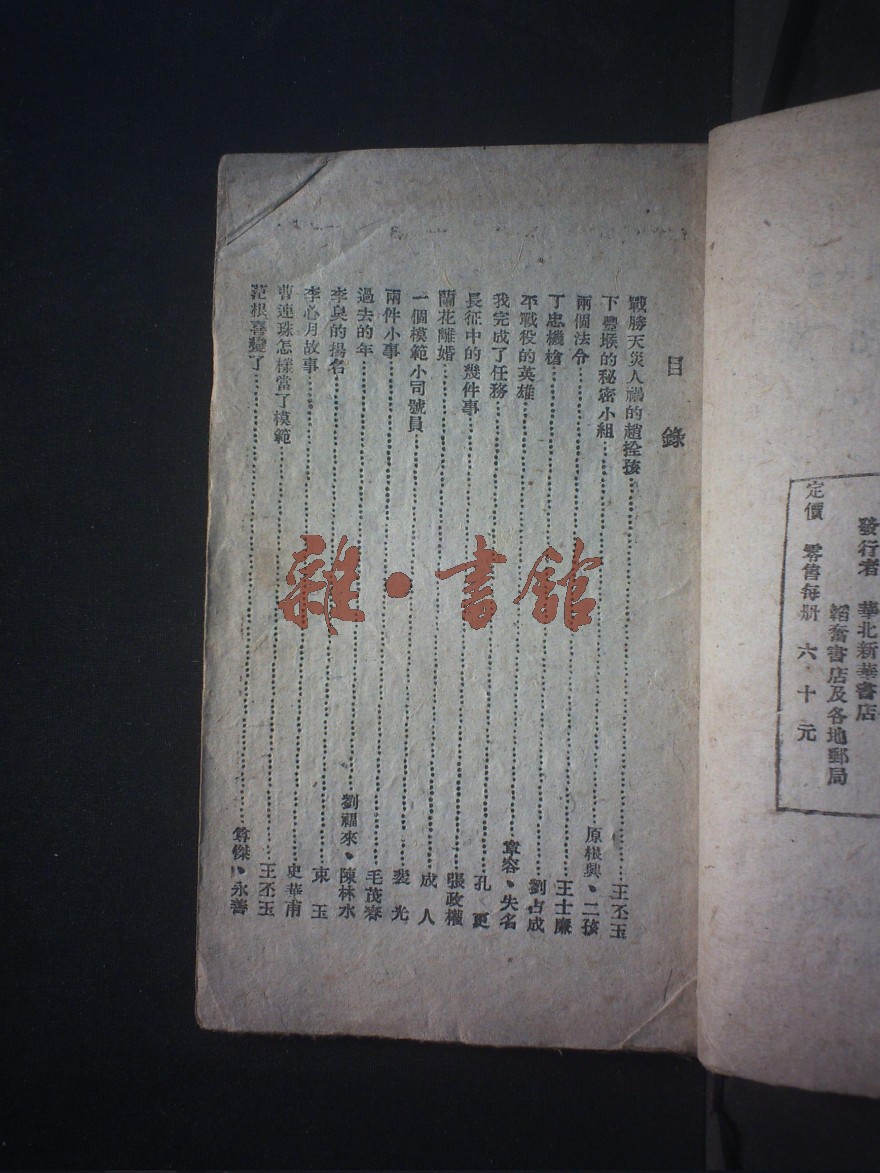 發行者 華北新華書店
韜奮書店及各地郵局
定價 零售每册 六·十元
目錄
戰勝天災人禍的趙拴孩……王丕玉
下豐堠的秘密小組……原根興、二孩
兩個法令……王士廉
丁忠機槍……劉占成
平戰役的英雄……章容、失名
我完成了任務……孔更
長征中的幾件事……張政權
蘭花離婚……成人
一個模範小司號員……裴光
兩件小事……毛茂春
過去的年……劉福來、陳林水
李臭的揚名……束玉
李心月故事……史華甫
曹連珠怎樣當了模範……王丕玉
范根喜變了……尊傑、永善
雜·書館